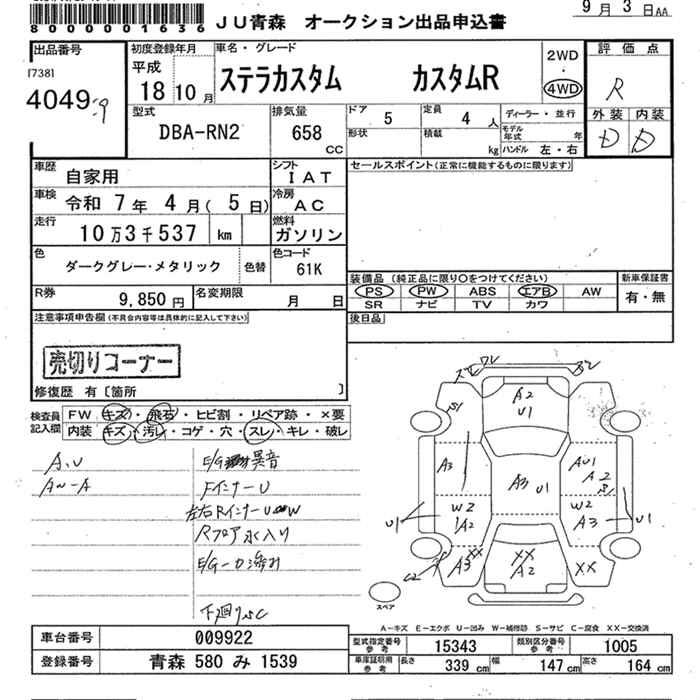 8000001636
JU青森 オークション出品申込書
9月3日AA
出品番号
[738]
4049
初度登録年月
平成
18 10月
車名・グレード
ステラカスタム カスタムR
2WD
・
4WD
評価点
R
外装 内装
D D
型式
DBA-RN2
排気量
658
CC
ドア 5
形状
定員 4 人
積載 kg
ディーラー・並行
モデル年式 年
ハンドル 左・右
車歴 自家用
シフト IAT
車検 令和 7年 4月( 5日)
冷房 AC
走行 10万3千537 km
燃料 ガソリン
色 ダークグレー・メタリック
色替
色コード 61K
R券 9,850円
名変期限 月 日
セールスポイント(正常に機能するものに限ります)
装備品 (純正品に限り○をつけてください)
PS PW ABS エアB AW
SR ナビ TV カワ
新車保証書
有・無
後日品
注意事項申告欄(不具合内容等は具体的に記入して下さい)
売切りコーナー
修復歴 有〔箇所 〕
検査員記入欄
FW キズ・飛石・ヒビ割・リペア跡・×要
内装 キズ・汚レ・コゲ・穴・スレ・キレ・破レ
A、U
E/G異音
FインナーU
左右RインナーU W
Rフロア水入り
E/Gーカ滲れ
下廻りSC
A2
U1
A3
A3 U1
AU1
A2
W2
A2
W2
A3
U1
U1
XX
A3
XX
A2
XX
C2
スペア
A―キズ E―エクボ U―凹み W―補修跡 S―サビ C―腐食 XX―交換済
車台番号 009922
登録番号 青森 580 み 1539
型式指定番号 参考 15343
類別区分番号 参考 1005
車庫証明用 参考 長さ 339 cm 幅 147 cm 高さ 164 cm